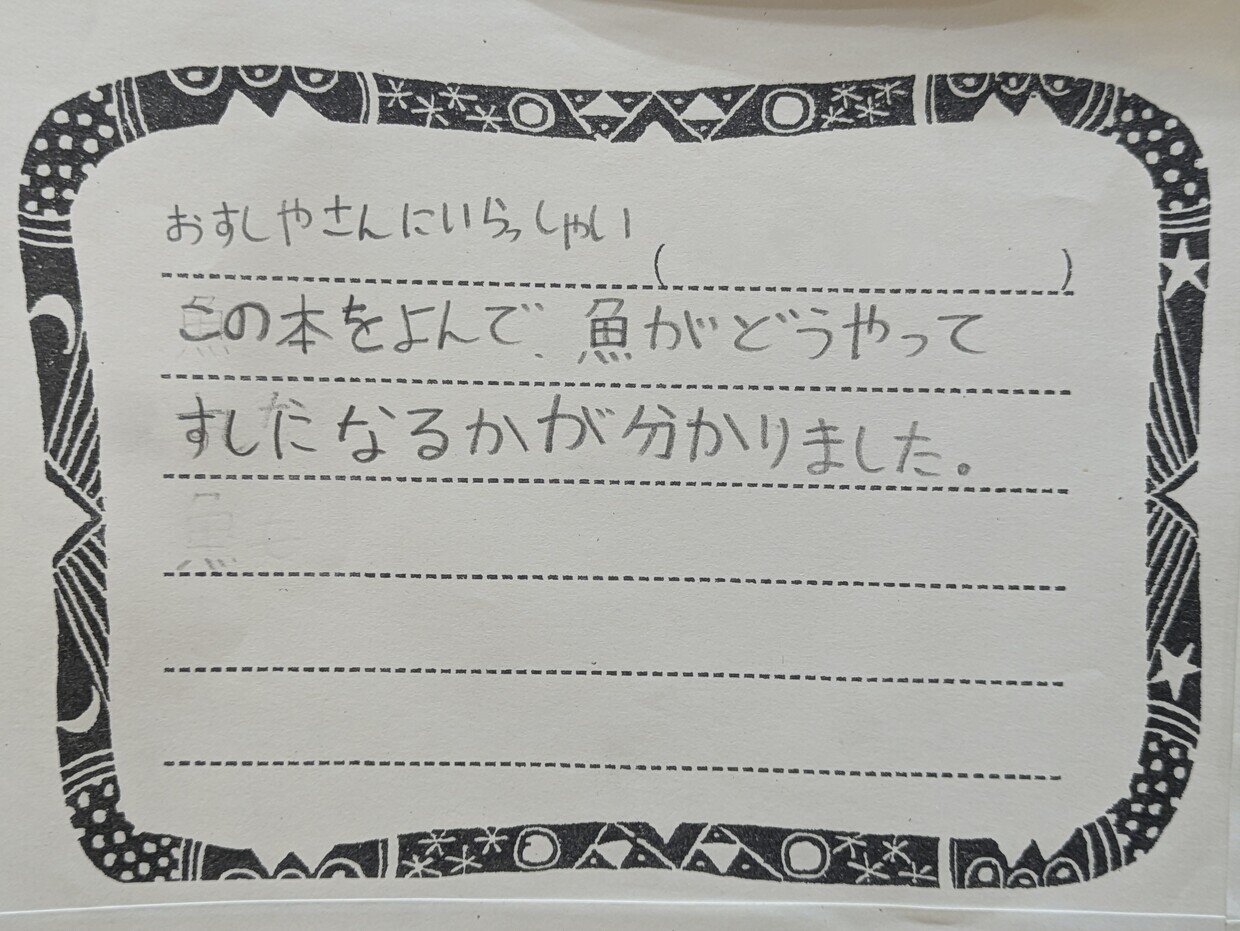 おすしやさんにいらっしゃい
(　　　　　)
この本をよんで、魚がどうやって
すしになるかが分かりました。